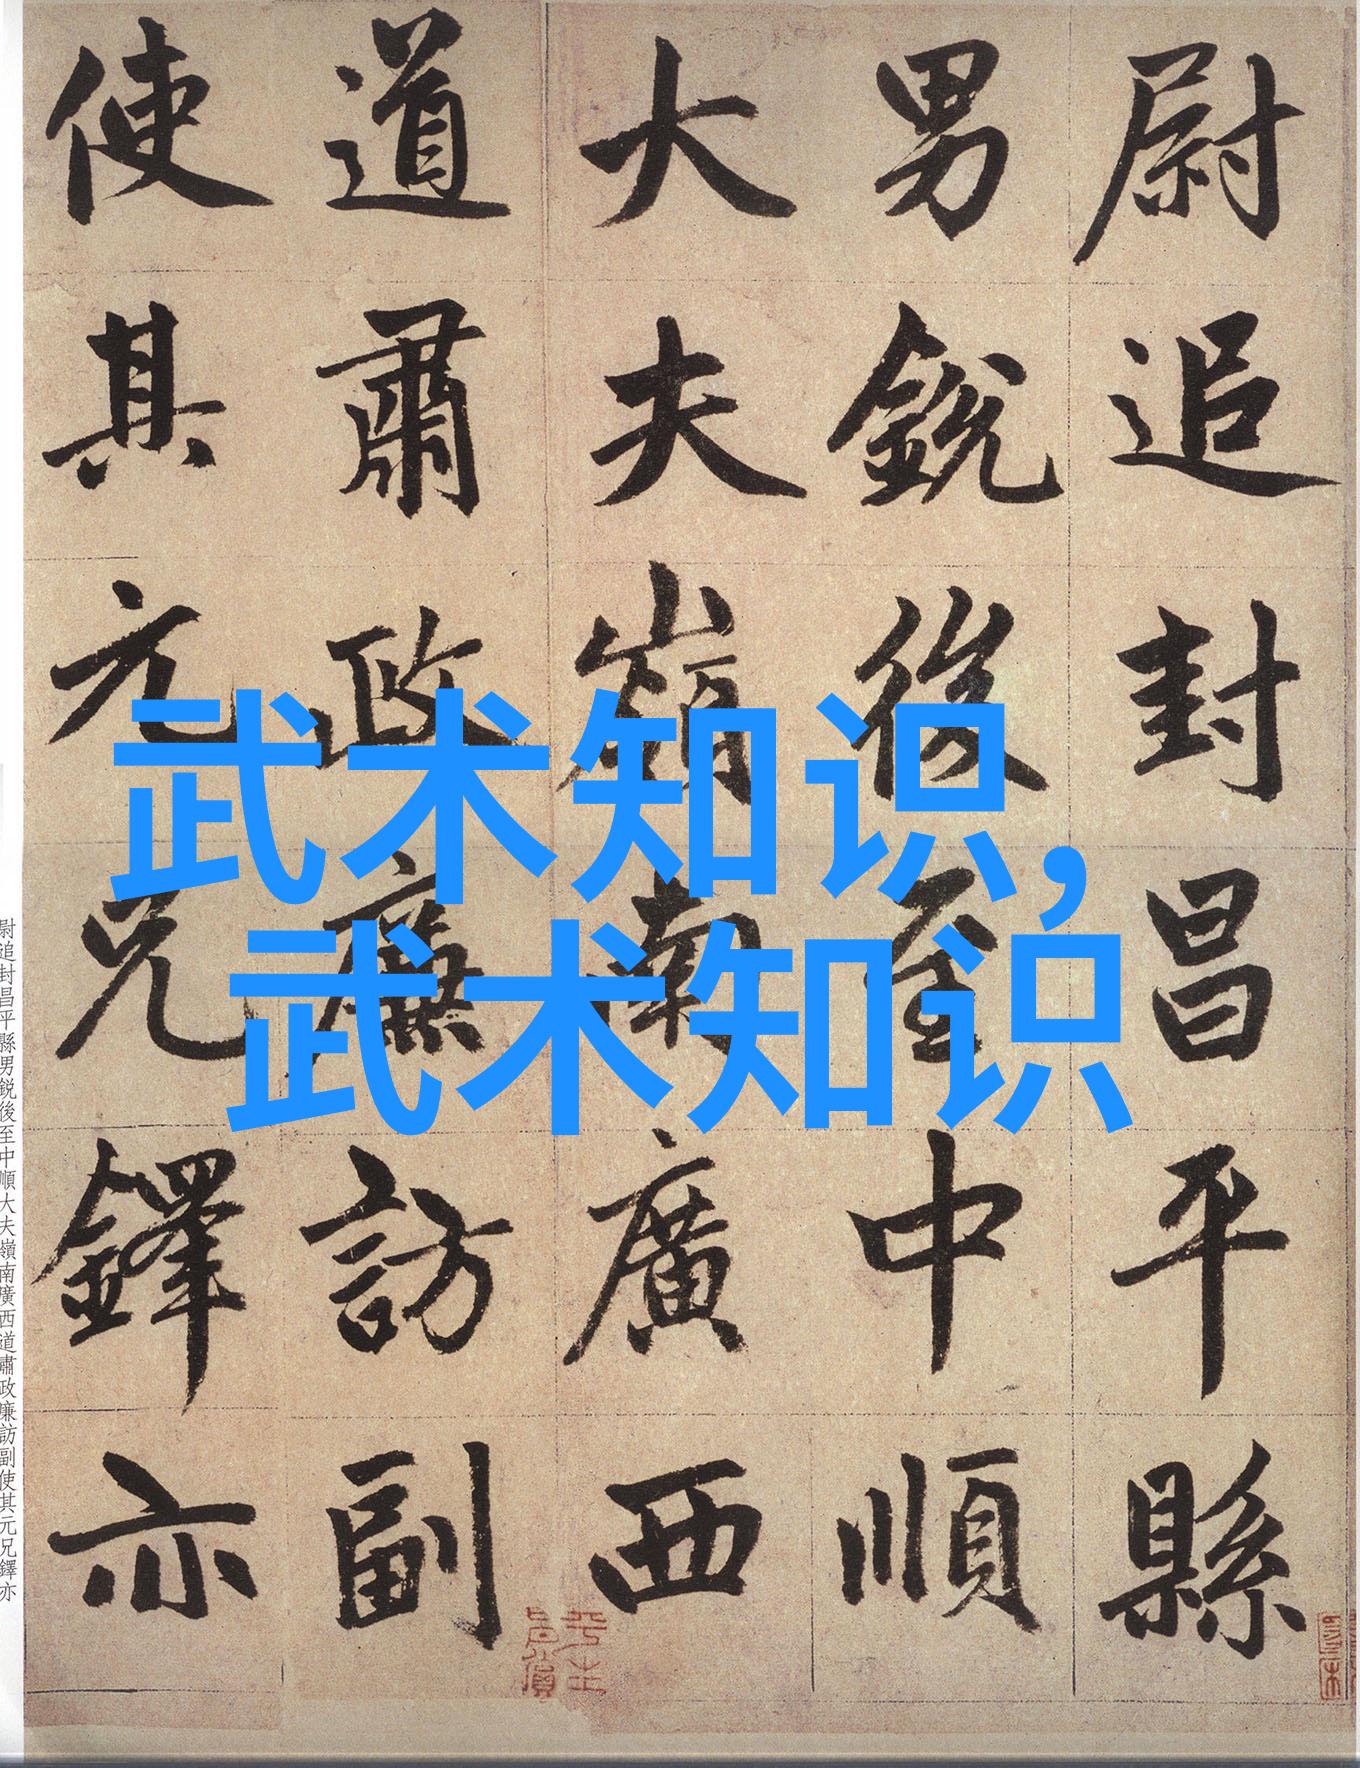 尉追封昌平縣
男銳後至中順
大夫嶺南廣西
道肅政廉訪副
使其元兄鐸亦
武术知识,
武术知识
尉追封昌平縣男銳後至中順大夫嶺南廣西道肅政廉訪副使其元兄鐸亦